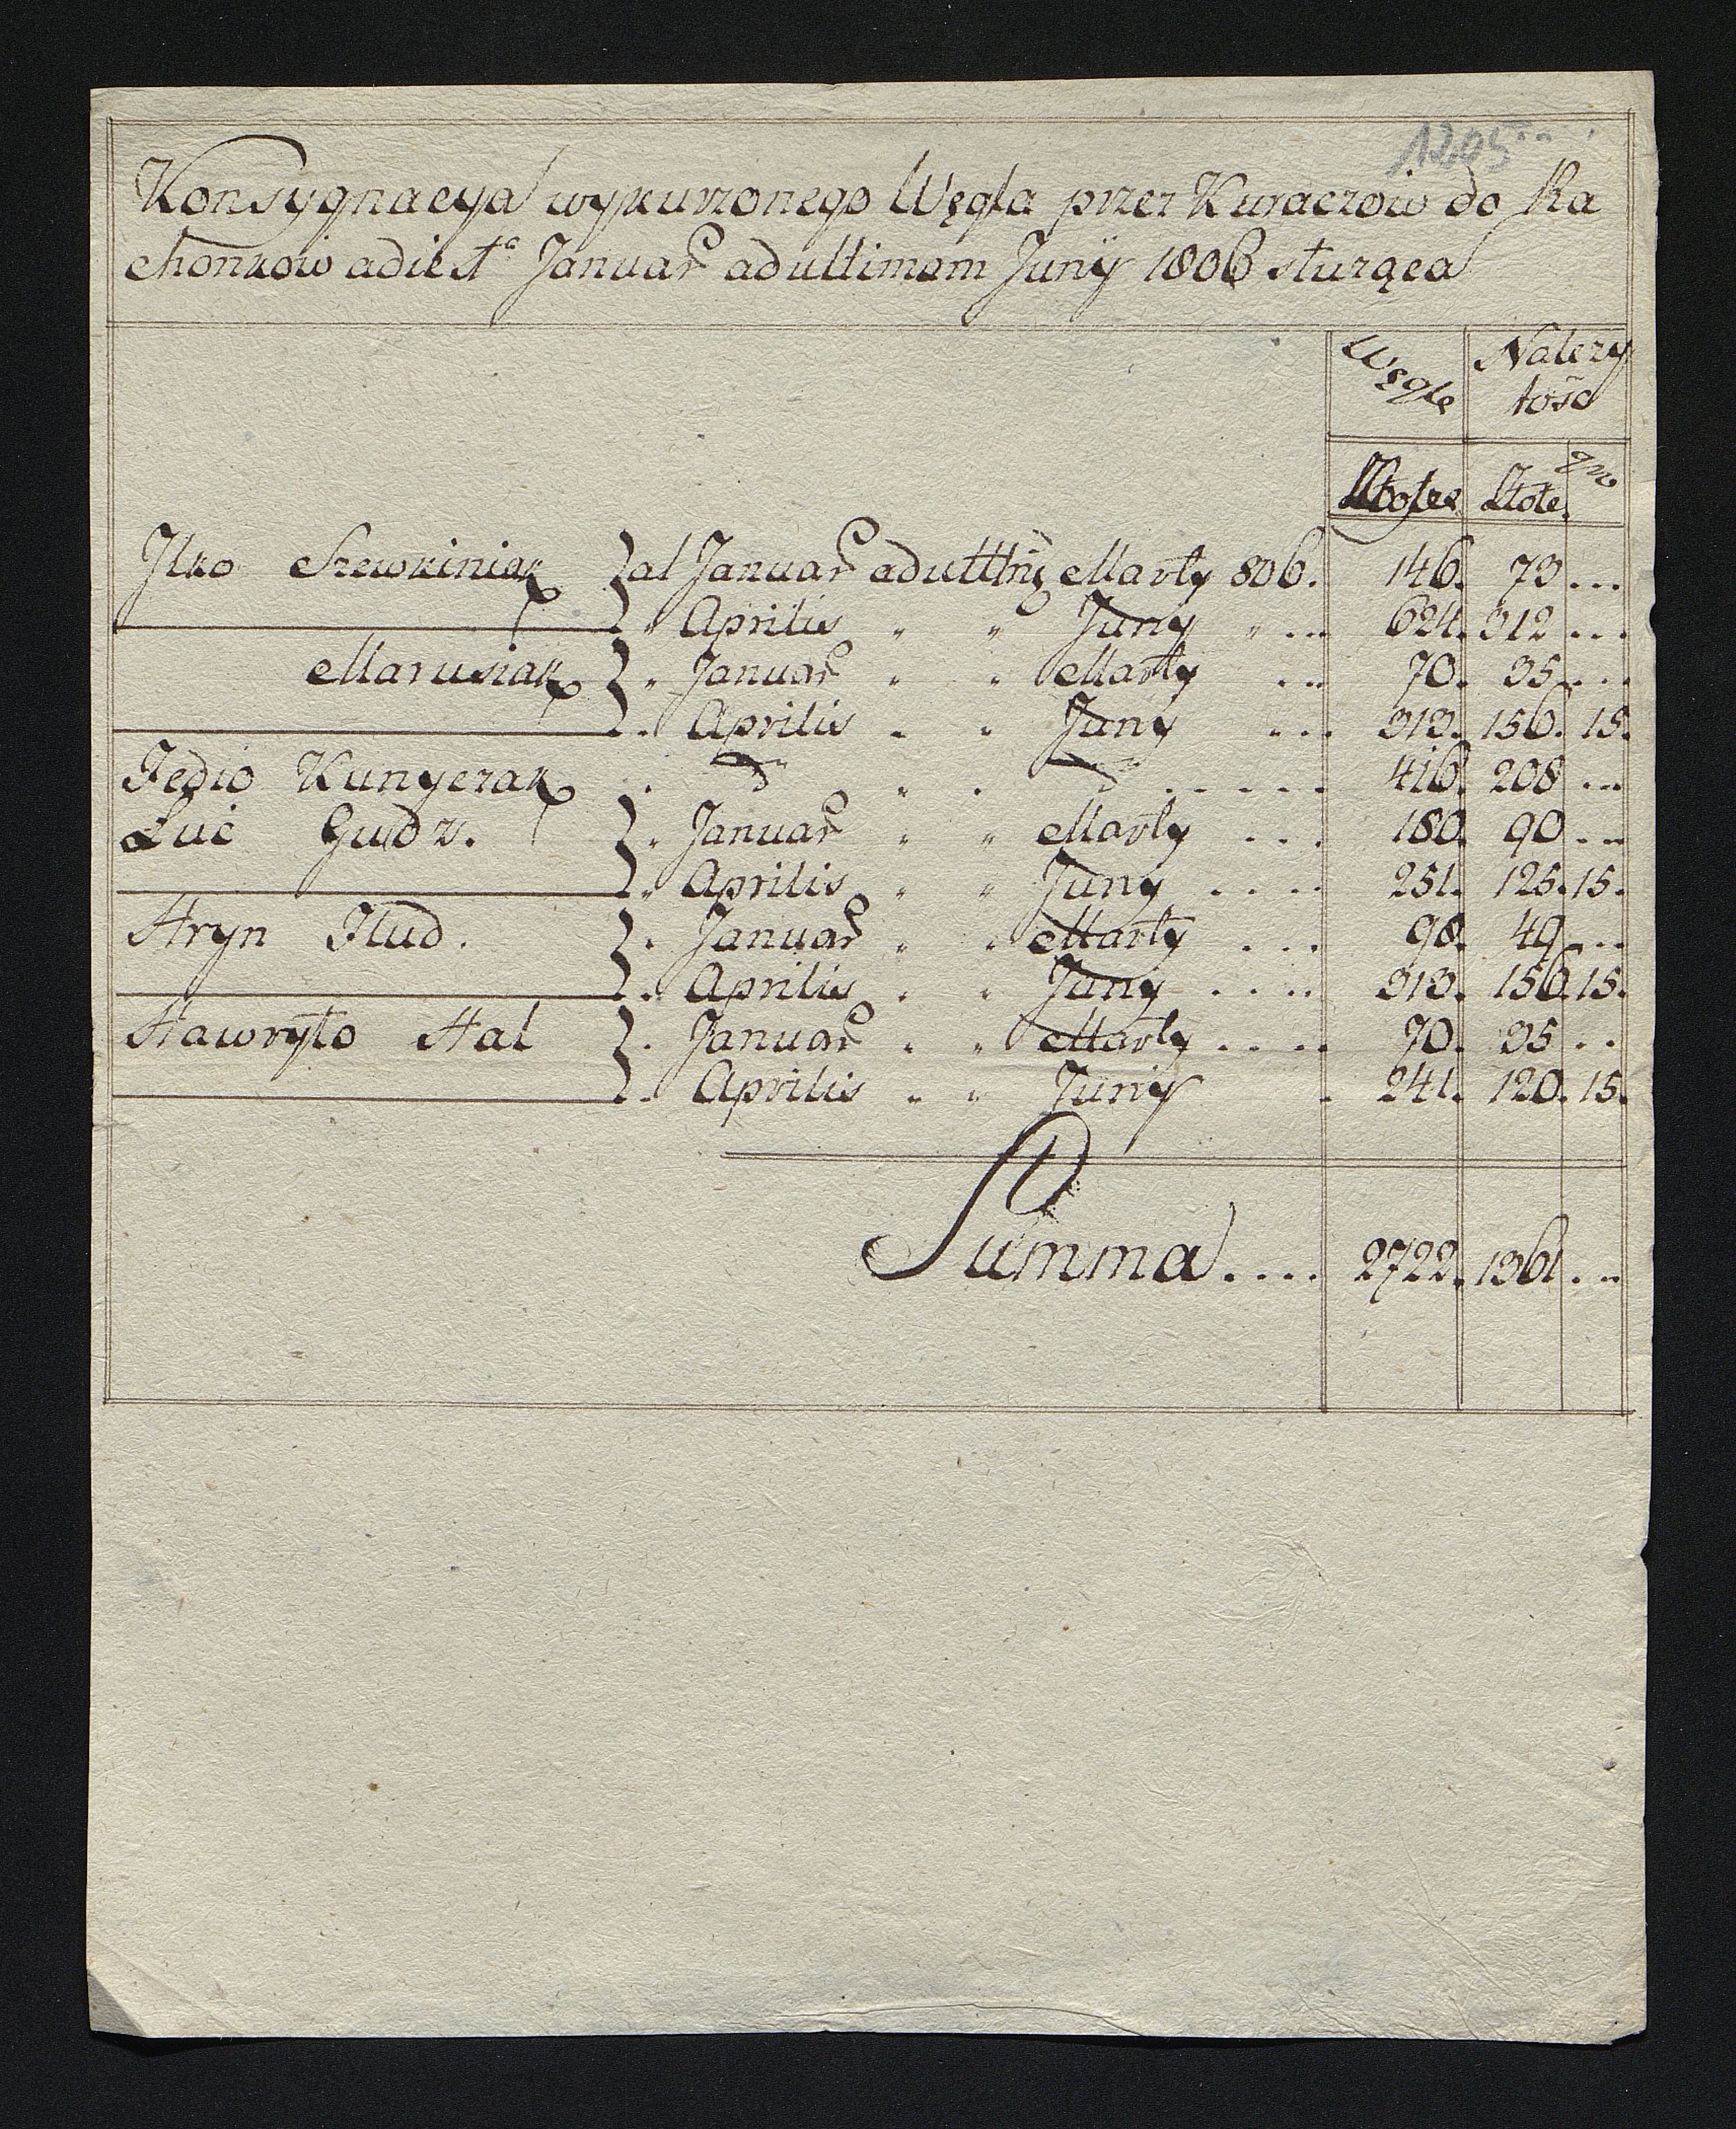 1205
Konsygnacya wykurzonego Węgla przez Kuraczow do Ra
chonkow a die 1ª Januar ad ultimam Juny 1806 służąca
Węgle Należy
tość
Złote gr
Ilko Szewkiniak } a 1 Januar ad ultim Marty 806. 146. 73 ...
} " Aprilis " " Juny " ... 624. 312 ...
Marusiak } " Januar " " Marty ... 70. 35 ...
} " Aprilis " " Juny ... 313. 156. 15.
Fedio Kunyczak " d " " d ..... 416. 208 ...
Luć Gudz. } " Januar " " Marty ... 180. 90 ...
} " Aprilis " " Juny .... 251. 125. 15.
Hryn Hud. } " Januar " " Marty ... 98. 49 ...
} " Aprilis " " Juny .... 313. 156. 15.
Hawryło Hal } " Januar " " Marty .... 70. 35 ..
} " Aprilis " " Juny . 241. 120. 15.
Summa .... 2722. 1361 ...